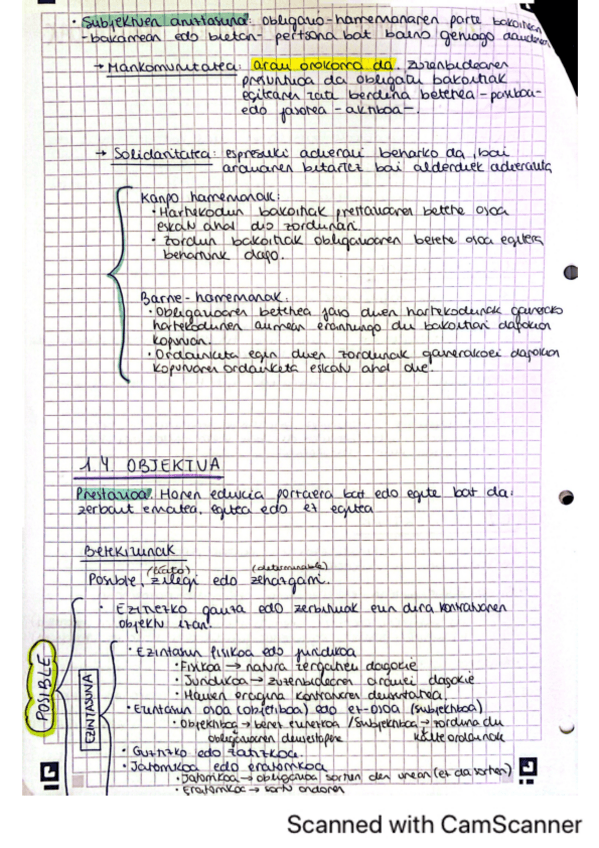 · Subjektuen aniztasuna: obligazio-harremanaren parte bakoitzean
-bakarrean edo bietan- pertsona bat baino gehiago daudenean
→ Mankomunitatea: arau orokorra da. Zuzenbidearen
presuntzioa da obligatu bakoitzak
egitearen zati berdina betetzea -pasiboa-
edo jasotzea -aktiboa-.
→ Solidaritatea: espresuki adierazi beharko da, bai
arauaren bitartez bai alderdiek adierazita
Kanpo harremanak:
· Hartzekodun bakoitzak prestazioaren betetze osoa
eskatu ahal dio zordunari.
· Zordun bakoitzak obligazioaren betetze osoa egitera
beharturik dago.
Barne-harremanak:
· Obligazioaren betetzea jaso duen hartzekodunak gainerako
hartzekodunen aurrean erantzungo du bakoitzari dagokion
kopuruan.
· Ordainketa egin duen zordunak gainerakoei dagokien
kopuruaren ordainketa eskatu ahal die.
1.4. OBJEKTUA
Prestazioa. Honen edukia portaera bat edo egite bat da:
zerbait ematea, egitea edo ez egitea
Betekizunak
(lícito) (determinable)
Posible, zilegi edo zehazgarri.
POSIBLE
· Ezinezko gauza edo zerbitzuak ezin dira kontratuaren
objektu izan.
EZINTASUNA
· Ezintasun fisikoa edo juridikoa
· Fisikoa → natura legeei dagokie
· Juridikoa → zuzenbidearen arauei dagokie
· Hauen eragina kontratuaren deuseztatzea.
· Ezintasun osoa (objetiboa) edo ez-osoa (subjektiboa)
· Objektiboa → beraz ezinezkoa / Subjektiboa → zorduna du
obligazioaren deuseztapena kalte ordainak
· Guztizko edo zatizkoa.
· Jatorrizkoa edo eratorrizkoa
· Jatorrizkoa → obligazioa sortzen den unean (ez da sortzen)
· Eratorrizkoa → sortu ondoren
Scanned with CamScanner